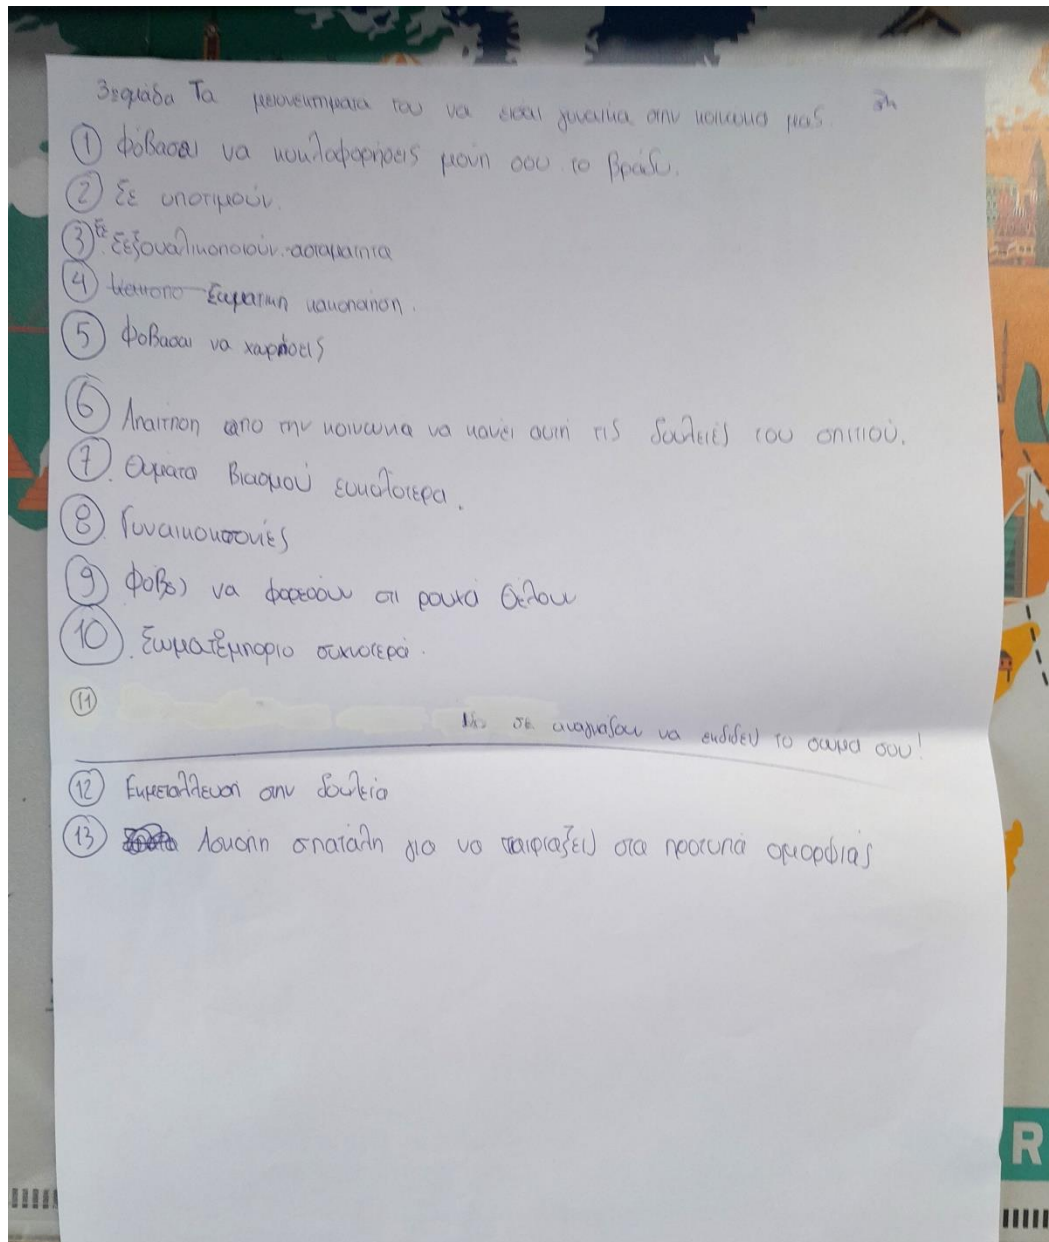 3η ομάδα Τα μειονεκτηματα του να εισαι γυναικα στην κοινωνια μας. 3η
① Φόβασαι να κυκλοφορήσεις μονη σου το βράδυ.
② Σε υποτιμούν.
③ Σε Σεξουαλικοποιούν ασταματητα
④ Σωματικη κακοποιηση.
⑤ Φοβασαι να χωρήσεις
⑥ Απαιτηση απο την κοινωνια να κανει αυτη τις δουλειές του σπιτιού.
⑦ Θυματα βιασμού ευκολοτερα.
⑧ Γυναικοκτονιές
⑨ να φορεσουν οτι ρουχα θέλουν
⑩ Σωματεμποριο συχνοτερα.
⑪
σε αναγκαζουν να εκδιδεις το σωμα σου!
⑫ Εκμεταλλευση στην δουλεία
⑬ Ασκοπη σπατάλη για να ταιριαζεις στα προτυπα ομορφιάς
R